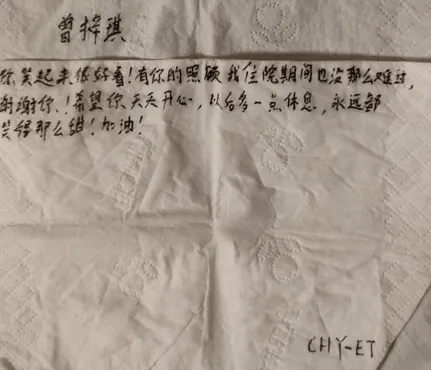 曾梓琪
你笑起来很好看！有你的照顾我住院期间也没那么难过，
谢谢你！希望你天天开心，以后多一点休息，永远都
笑得那么甜！加油！
CHY-ET